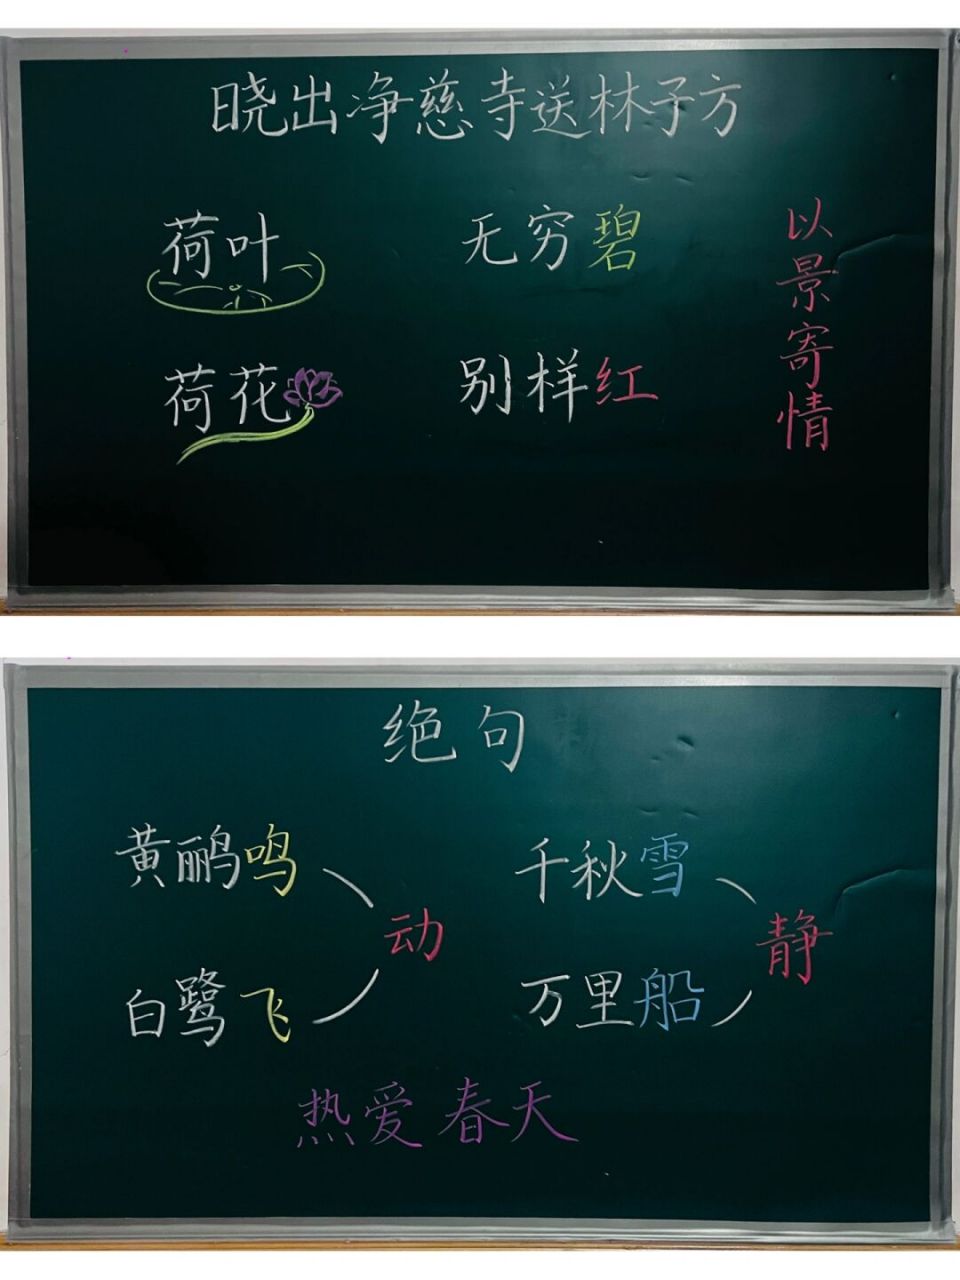 晓出净慈寺送林子方
荷叶 无穷碧
荷花 别样红
以景寄情
绝句
黄鹂鸣 千秋雪
动 静
白鹭飞 万里船
热爱春天